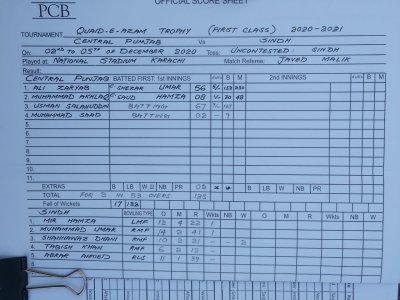 OFFICIAL SCORE SHEET
PCB
TOURNAMENT QUAID-E-AZAM TROPHY (FIRST CLASS) 2020-2021
CENTRAL PUNJAB Vs SINDH
On: 02nd to 05th of DECEMBER 2020 Toss: UNCONTESTED - SINDH
Played at: NATIONAL STADIUM KARACHI Match Referee: JAVED MALIK
Result:
CENTRAL PUNJAB BATTED FIRST: 1st INNINGS B M 2nd INNINGS B M
1. ALI ZARYAB C SHEZAR UMAR 56 153 230
2. MUHAMMAD AKHLAQ C SAUD HAMZA 08 30 48
3. USMAN SALAHUDDIN BATTING 67
4. MUHAMMAD SAAD BATTING 02 - 9
5.
6.
7.
8.
9.
10.
11.
EXTRAS B LB W 2 NB PR 02 B LB W NB PR
TOTAL FOR 2 IN 53 OVERS 135
Fall of Wickets 17 132
SINDH BOWLING TYPE O M R Wkts NB W O M R Wkts NB W
1 MIR HAMZA LMF 12 4 22 1
2 MUHAMMAD UMAR RMF 14 2 41 1
3 SHAHNAWAZ DHANI RMF 10 2 21 - - 2
4 TABISH KHAN RMF 6 2 12 -
5 ABRAR AHMED RLS 11 1 39 -
6